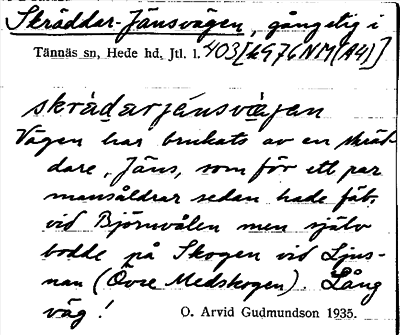 Skrädder-Jänsvägen, gångstig i
Tännäs sn, Hede hd, Jtl. l. 403[6976NM(A4)]
skrädarjänsvägan
Vägen har brukats av en skräd-
dare, Jäns, som för ett par
mansåldrar sedan hade fäb.
vid Björnvålen men själv
bodde på Skogen vid Ljus-
nan (Övre Medskogen). Lång
väg!
O. Arvid Gudmundson 1935.